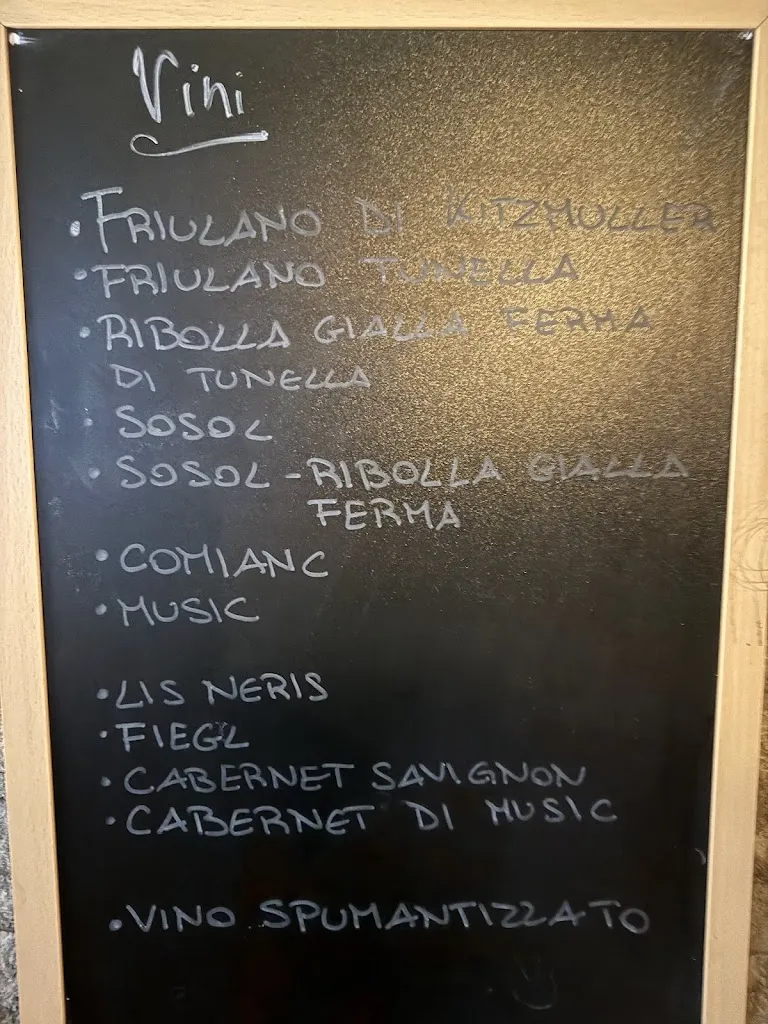 Vini
• FRIULANO DI KITZMULLER
• FRIULANO TUNELLA
• RIBOLLA GIALLA FERMA
DI TUNELLA
• SOSOL
• SOSOL - RIBOLLA GIALLA
FERMA
• COMIANC
• MUSIC
• LIS NERIS
• FIEGL
• CABERNET SAVIGNON
• CABERNET DI MUSIC
• VINO SPUMANTIZZATO